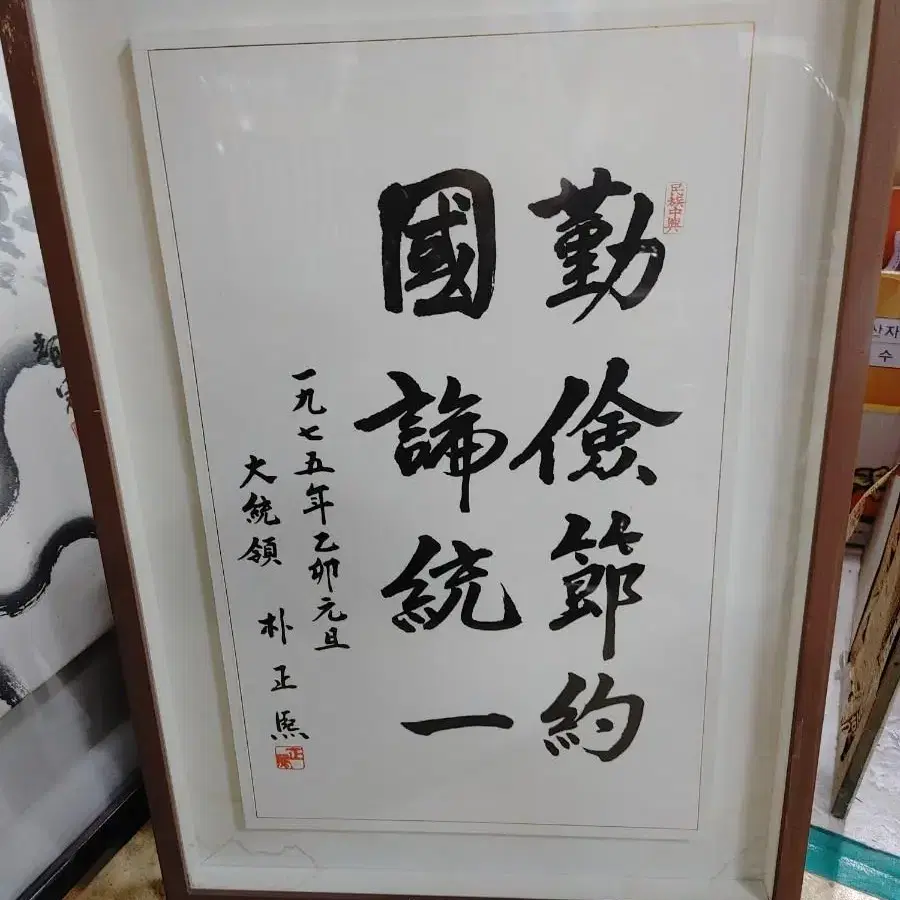 民族中興
勤儉節約
國論統一
一九七五年乙卯元旦
大統領 朴正熙
산자
수